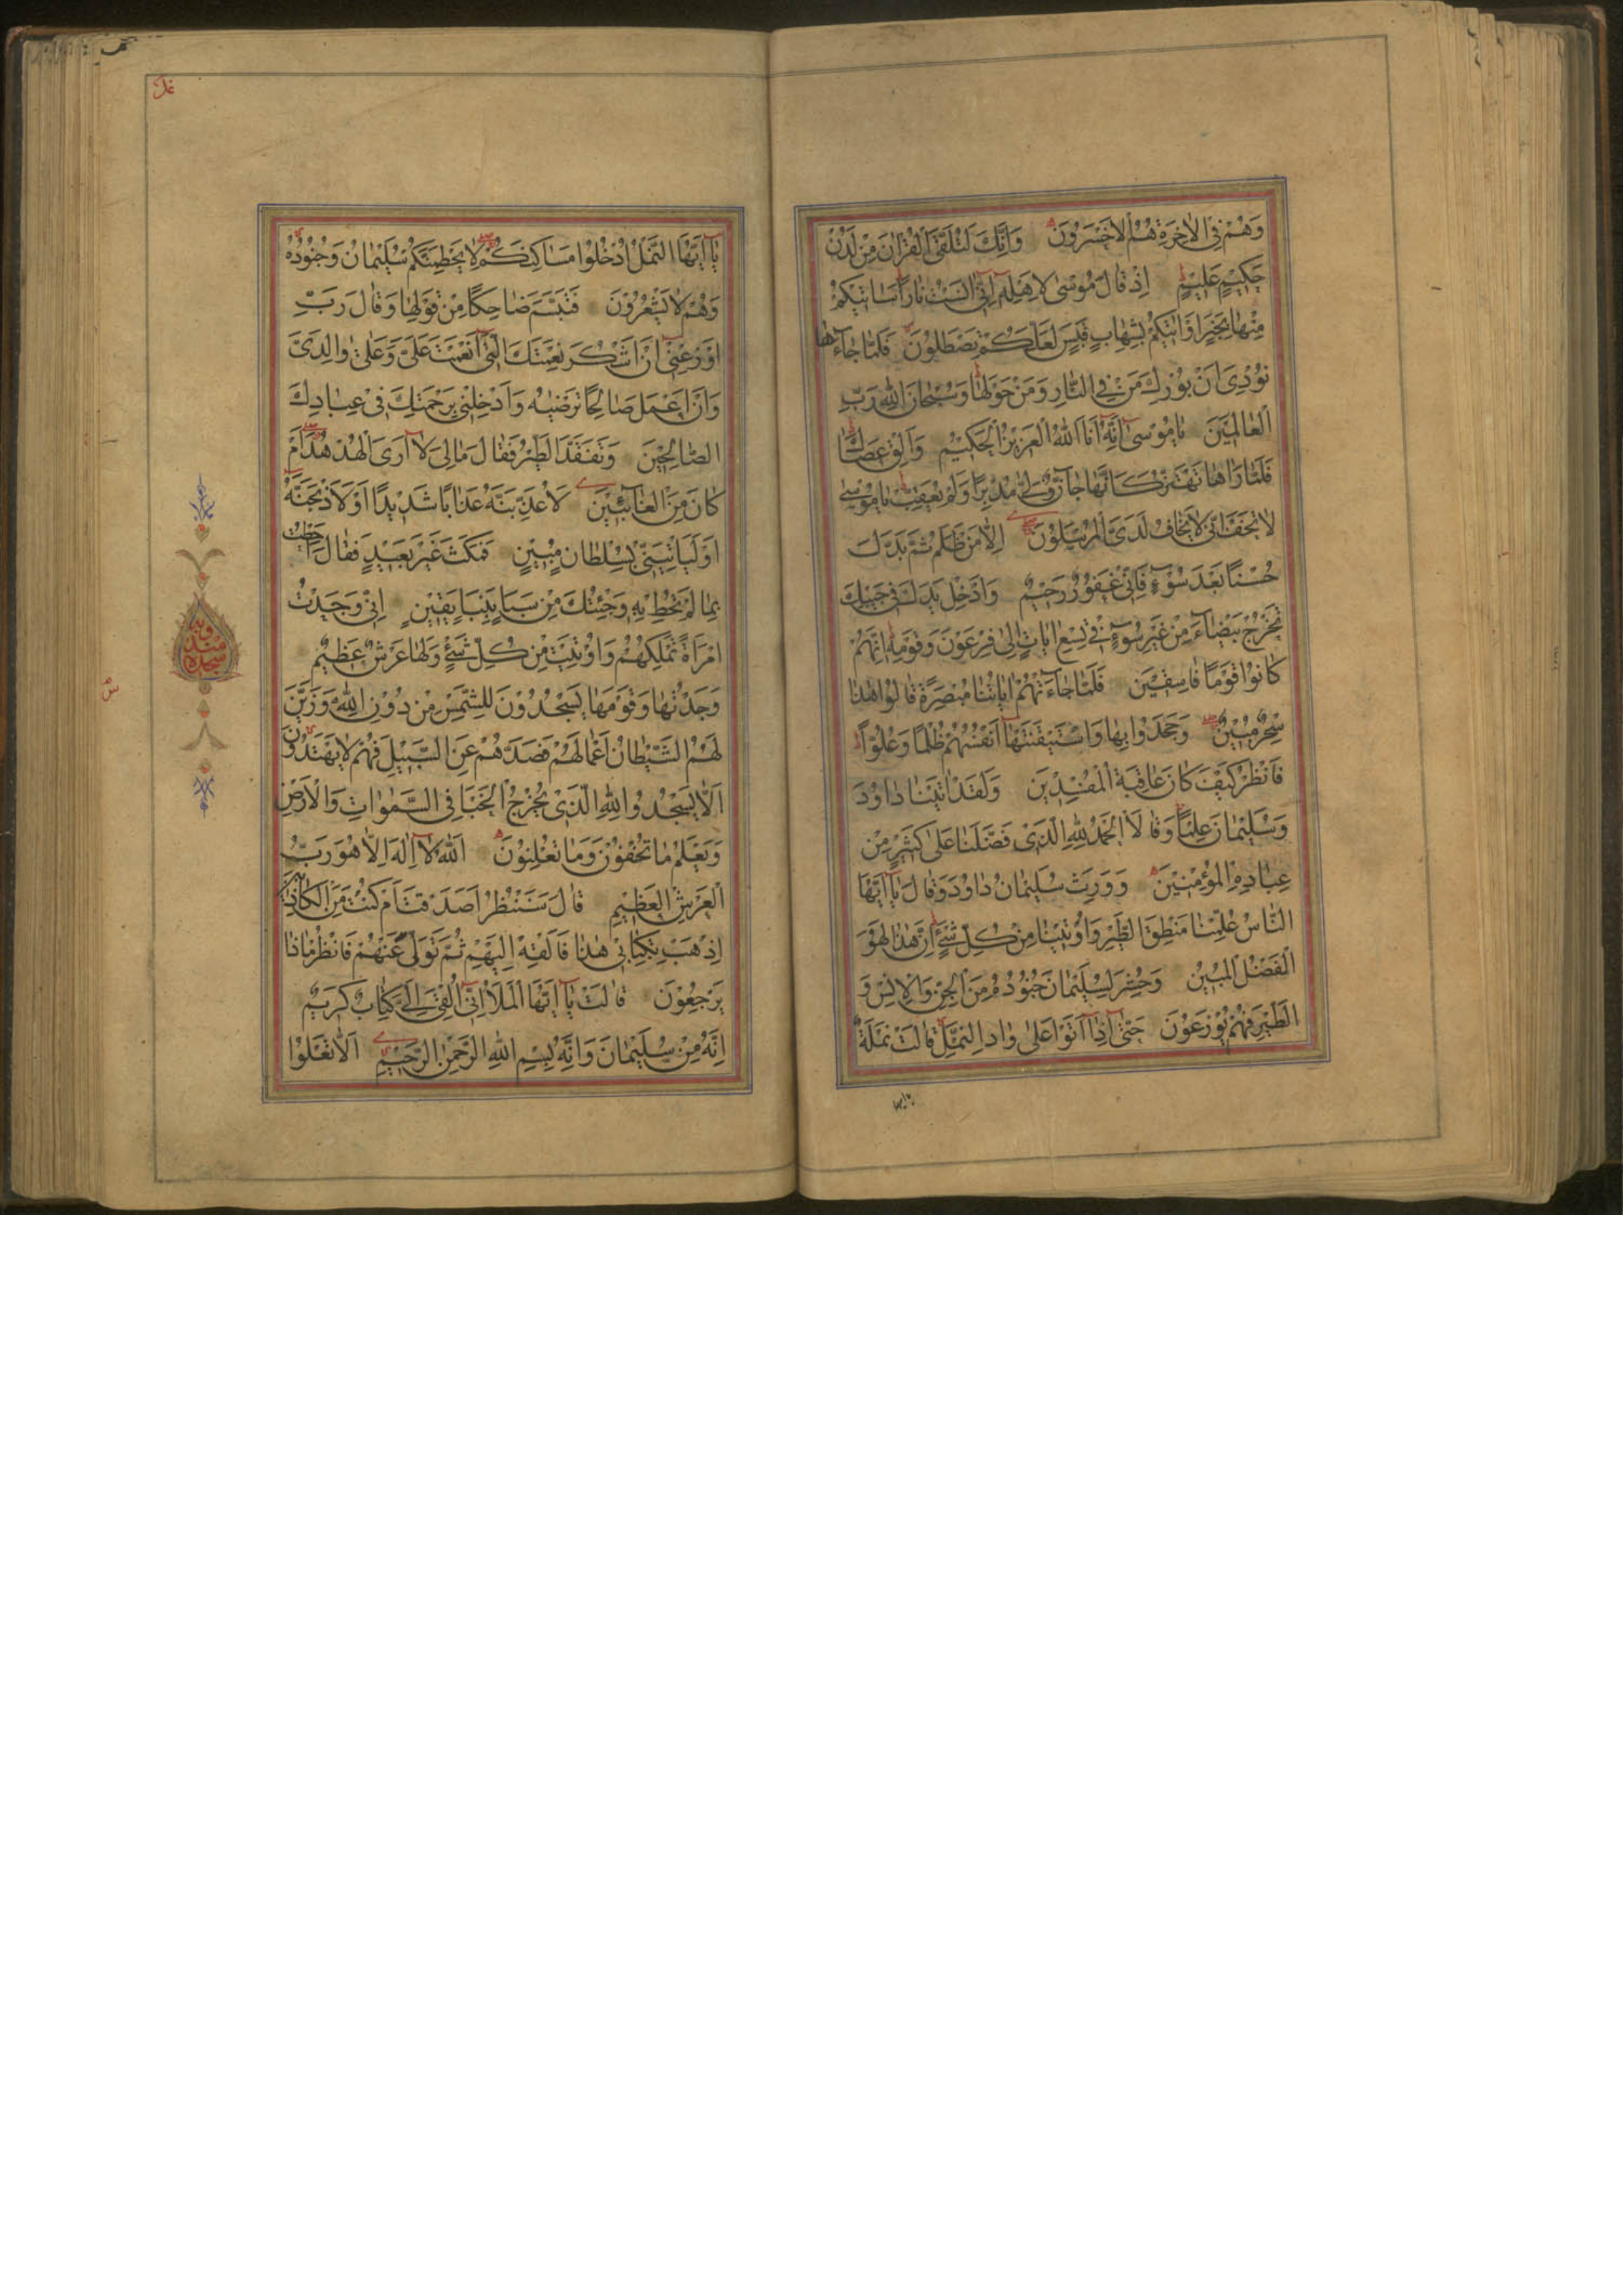 وَهُمْ فِي الْاٰخِرَةِ هُمُ الْاَخْسَرُونَ وَاِنَّكَ لَتُلَقَّى الْقُرْاٰنَ مِنْ لَدُنْ
حَكِيمٍ عَلِيمٍ اِذْ قَالَ مُوسٰى لِاَهْلِهِ اِنِّي اٰنَسْتُ نَارًا سَاٰتِيكُمْ
مِنْهَا بِخَبَرٍ اَوْ اٰتِيكُمْ بِشِهَابٍ قَبَسٍ لَعَلَّكُمْ تَصْطَلُونَ فَلَمَّا جَاءَهَا
نُودِيَ اَنْ بُورِكَ مَنْ فِي النَّارِ وَمَنْ حَوْلَهَا وَسُبْحَانَ اللّٰهِ رَبِّ
الْعَالَمِينَ يَا مُوسٰى اِنَّهُ اَنَا اللّٰهُ الْعَزِيزُ الْحَكِيمُ وَاَلْقِ عَصَاكَ
فَلَمَّا رَاٰهَا تَهْتَزُّ كَاَنَّهَا جَانٌّ وَلّٰى مُدْبِرًا وَلَمْ يُعَقِّبْ يَا مُوسٰى
لَا تَخَفْ اِنِّي لَا يَخَافُ لَدَيَّ الْمُرْسَلُونَ اِلَّا مَنْ ظَلَمَ ثُمَّ بَدَّلَ
حُسْنًا بَعْدَ سُوءٍ فَاِنِّي غَفُورٌ رَحِيمٌ وَاَدْخِلْ يَدَكَ فِي جَيْبِكَ
تَخْرُجْ بَيْضَاءَ مِنْ غَيْرِ سُوءٍ فِي تِسْعِ اٰيَاتٍ اِلٰى فِرْعَوْنَ وَقَوْمِهِ اِنَّهُمْ
كَانُوا قَوْمًا فَاسِقِينَ فَلَمَّا جَاءَتْهُمْ اٰيَاتُنَا مُبْصِرَةً قَالُوا هٰذَا
سِحْرٌ مُبِينٌ وَجَحَدُوا بِهَا وَاسْتَيْقَنَتْهَا اَنْفُسُهُمْ ظُلْمًا وَعُلُوًّا
فَانْظُرْ كَيْفَ كَانَ عَاقِبَةُ الْمُفْسِدِينَ وَلَقَدْ اٰتَيْنَا دَاوُدَ
وَسُلَيْمَانَ عِلْمًا وَقَالَا الْحَمْدُ لِلّٰهِ الَّذِي فَضَّلَنَا عَلٰى كَثِيرٍ مِنْ
عِبَادِهِ الْمُؤْمِنِينَ وَوَرِثَ سُلَيْمَانُ دَاوُدَ وَقَالَ يَا اَيُّهَا
النَّاسُ عُلِّمْنَا مَنْطِقَ الطَّيْرِ وَاُوتِينَا مِنْ كُلِّ شَيْءٍ اِنَّ هٰذَا لَهُوَ
الْفَضْلُ الْمُبِينُ وَحُشِرَ لِسُلَيْمَانَ جُنُودُهُ مِنَ الْجِنِّ وَالْاِنْسِ وَ
الطَّيْرِ فَهُمْ يُوزَعُونَ حَتّٰى اِذَا اَتَوْا عَلٰى وَادِ النَّمْلِ قَالَتْ نَمْلَةٌ
يَا اَيُّهَا
يَا اَيُّهَا النَّمْلُ ادْخُلُوا مَسَاكِنَكُمْ لَا يَحْطِمَنَّكُمْ سُلَيْمَانُ وَجُنُودُهُ
وَهُمْ لَا يَشْعُرُونَ فَتَبَسَّمَ ضَاحِكًا مِنْ قَوْلِهَا وَقَالَ رَبِّ
اَوْزِعْنِي اَنْ اَشْكُرَ نِعْمَتَكَ الَّتِي اَنْعَمْتَ عَلَيَّ وَعَلٰى وَالِدَيَّ
وَاَنْ اَعْمَلَ صَالِحًا تَرْضٰيهُ وَاَدْخِلْنِي بِرَحْمَتِكَ فِي عِبَادِكَ
الصَّالِحِينَ وَتَفَقَّدَ الطَّيْرَ فَقَالَ مَا لِيَ لَا اَرَى الْهُدْهُدَ اَمْ
كَانَ مِنَ الْغَائِبِينَ لَاُعَذِّبَنَّهُ عَذَابًا شَدِيدًا اَوْ لَاَذْبَحَنَّهُ
اَوْ لَيَاْتِيَنِّي بِسُلْطَانٍ مُبِينٍ فَمَكَثَ غَيْرَ بَعِيدٍ فَقَالَ اَحَطْتُ
بِمَا لَمْ تُحِطْ بِهِ وَجِئْتُكَ مِنْ سَبَاٍ بِنَبَاٍ يَقِينٍ اِنِّي وَجَدْتُ
امْرَاَةً تَمْلِكُهُمْ وَاُوتِيَتْ مِنْ كُلِّ شَيْءٍ وَلَهَا عَرْشٌ عَظِيمٌ
وَجَدْتُهَا وَقَوْمَهَا يَسْجُدُونَ لِلشَّمْسِ مِنْ دُونِ اللّٰهِ وَزَيَّنَ
لَهُمُ الشَّيْطَانُ اَعْمَالَهُمْ فَصَدَّهُمْ عَنِ السَّبِيلِ فَهُمْ لَا يَهْتَدُونَ
اَلَّا يَسْجُدُوا لِلّٰهِ الَّذِي يُخْرِجُ الْخَبْاَ فِي السَّمٰوَاتِ وَالْاَرْضِ
وَيَعْلَمُ مَا تُخْفُونَ وَمَا تُعْلِنُونَ اَللّٰهُ لَا اِلٰهَ اِلَّا هُوَ رَبُّ
الْعَرْشِ الْعَظِيمِ قَالَ سَنَنْظُرُ اَصَدَقْتَ اَمْ كُنْتَ مِنَ الْكَاذِبِينَ
اِذْهَبْ بِكِتَابِي هٰذَا فَاَلْقِهْ اِلَيْهِمْ ثُمَّ تَوَلَّ عَنْهُمْ فَانْظُرْ مَاذَا
يَرْجِعُونَ قَالَتْ يَا اَيُّهَا الْمَلَاُ اِنِّي اُلْقِيَ اِلَيَّ كِتَابٌ كَرِيمٌ
اِنَّهُ مِنْ سُلَيْمَانَ وَاِنَّهُ بِسْمِ اللّٰهِ الرَّحْمٰنِ الرَّحِيمِ اَلَّا تَعْلُوا
سجده